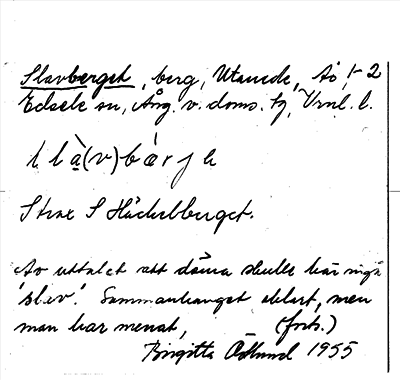 Slavberget, berg, Utanede, Åo, 1-2
Edsele sn, Ång. v. doms. tg, Vrnl. l.
l l à (v) b æ r j e
Strax S Häckelberget.
Av uttalet att döma skulle här ingå
'slev'. Sammanhanget oklart, men
man har menat, (forts.)
Birgitta Ödlund 1955